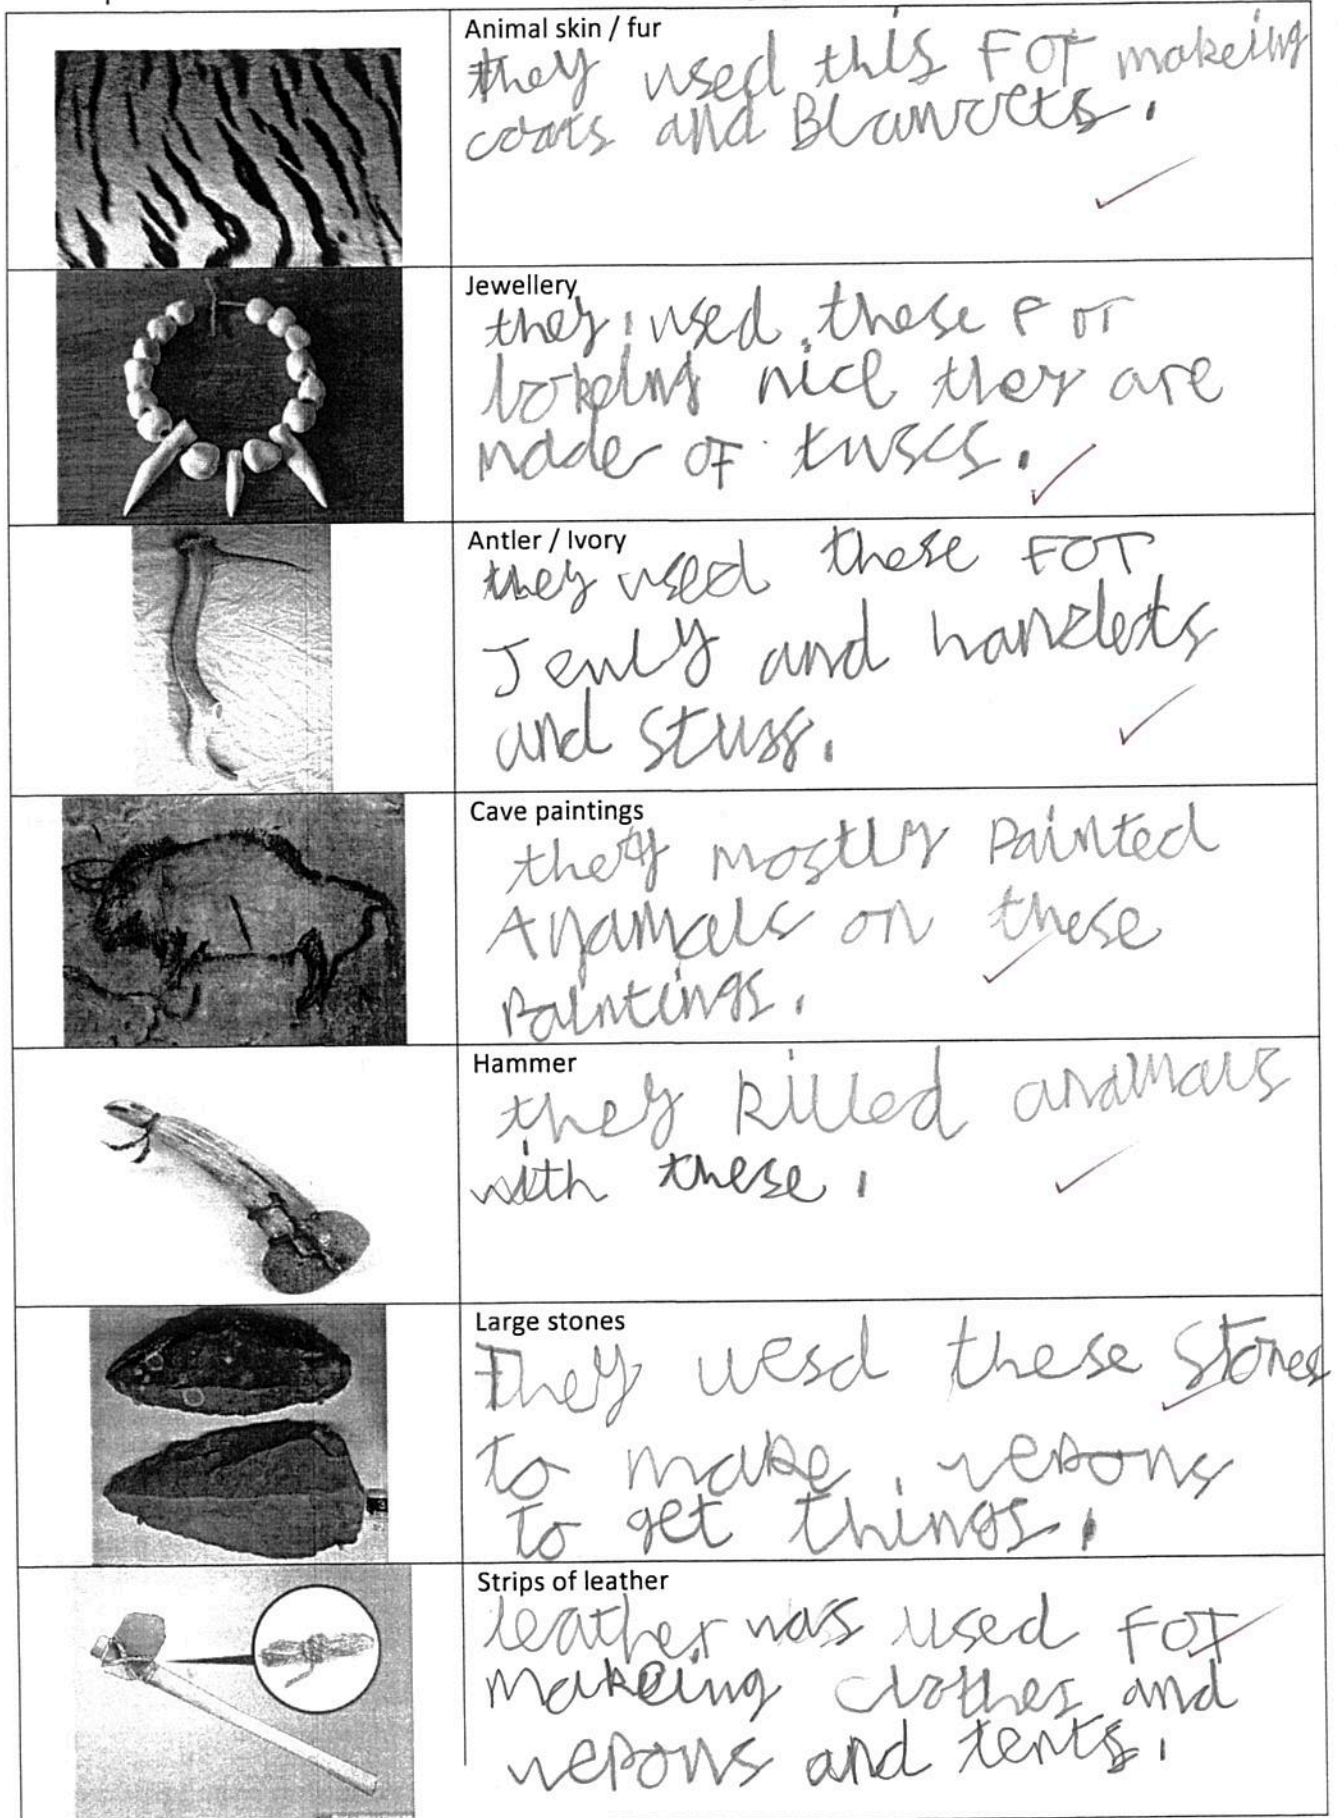 Animal skin / fur
they used this FOr makeing
coats and Blanccets.
Jewellery
they used these For
lookeing nice they are
made of tuscs.
Antler / Ivory
they used these FOr
Jenly and handlets
and stuff.
Cave paintings
they mostly Painted
Anamals on these
Paintings.
Hammer
they killed anamals
with these.
Large stones
They uesd these stones
to make wepons
to get things.
Strips of leather
leather was used FOr
makeing clothes and
wepons and tents.